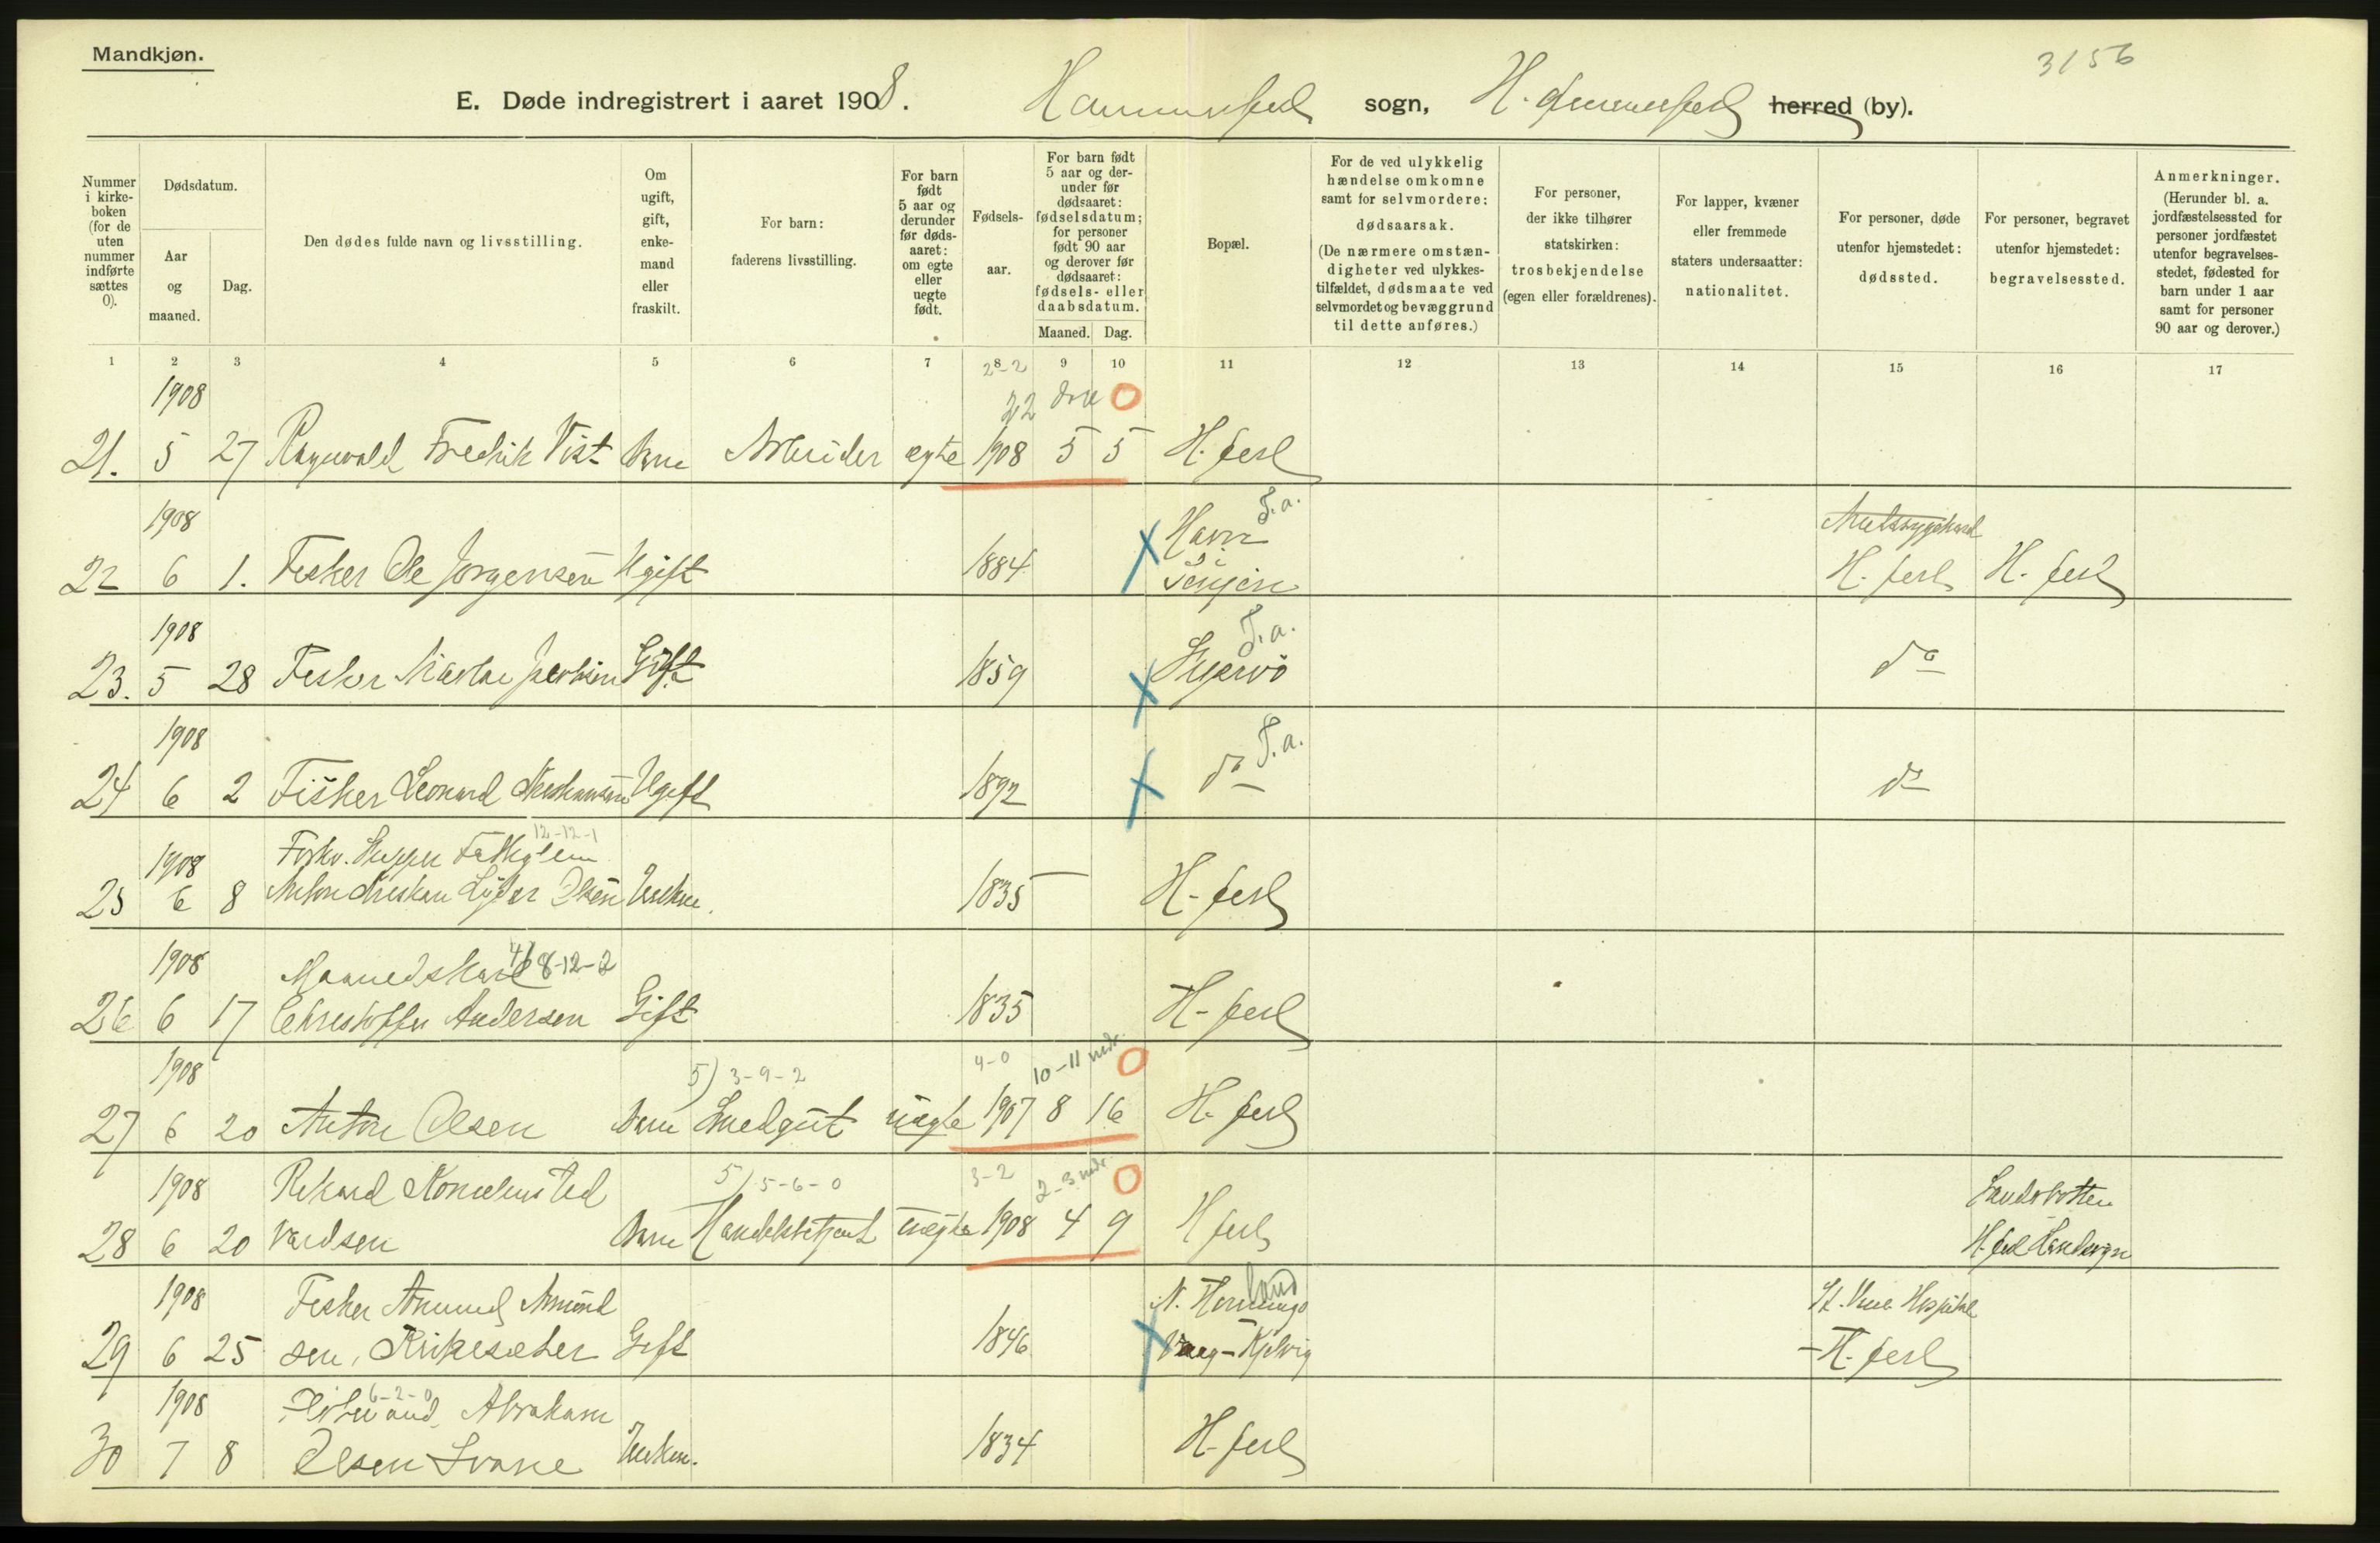 Mandkjøn.
3156
E. Døde indregistrert i aaret 1908. Hammerfest sogn, Hammerfest herred (by).
Nummer i kirke-boken (for de uten nummer indførte sættes 0).
Dødsdatum.
Aar og maaned.
Dag.
Den dødes fulde navn og livsstilling.
Om ugift, gift, enke-mand eller fraskilt.
For barn: faderens livsstilling.
For barn født 5 aar og derunder før døds-aaret: om egte eller uegte født.
Fødsels-aar.
For barn født 5 aar og der-under før dødsaaret: fødselsdatum; for personer født 90 aar og derover før dødsaaret: fødsels- eller daabsdatum.
Maaned. Dag.
Bopæl.
For de ved ulykkelig hændelse omkomne samt for selvmordere: dødsaarsak. (De nærmere omstæn-digheter ved ulykkes-tilfældet, dødsmaate ved selvmordet og bevæggrund til dette anføres.)
For personer, der ikke tilhører statskirken: trosbekjendelse (egen eller forældrenes).
For lapper, kvæner eller fremmede staters undersaatter: nationalitet.
For personer, døde utenfor hjemstedet: dødssted.
For personer, begravet utenfor hjemstedet: begravelsessted.
Anmerkninger. (Herunder bl. a. jordfæstelsessted for personer jordfæstet utenfor begravelses-stedet, fødested for barn under 1 aar samt for personer 90 aar og derover.)
1 2 3 4 5 6 7 8 9 10 11 12 13 14 15 16 17
28-2
1908 22 dage 0
21. 5 27 Ragnvald Fredrik Vist Barn Arbeider egte 1908 5 5 H.fest
1908 Havn F.a.
22 6 1. Fisker Ole Jørgensen Ugift 1884 i Senjen H.fest H.fest
1908 F.a.
23. 5 28 Fisker Jacobsen Gift 1859 Skjærvö do
1908 F.a.
24 6 2 Fisker Leonard Ugift 1892 do do
1908 Forhv. 12-12-1
25 6 8 Anton Kristian Olsen Enkem. 1835 H-fest
1908 Maanedskarl 4) 8-12-2
26 6 17 Christoffer Andersen Gift 1835 H-fest
1908 5) 3-9-2 4-0 10-11 mdr. 0
27 6 20 Anton Olsen Barn Smedgut uægte 1907 8 16 H.fest
1908 Rikard Kornelius Ed 5) 5-6-0 3-2 2-3 mdr. 0
28 6 20 vardsen Barn Handelsbetjent uægte 1908 4 9 H fest H.fest
1908 Fisker Amund Amund N. land St. Hospital
29 6 25 sen, Gift 1846 Kjelvig -H.fest
1908 6-2-0 Abraham
30 7 8 Olsen Svane Enkem. 1834 H-fest